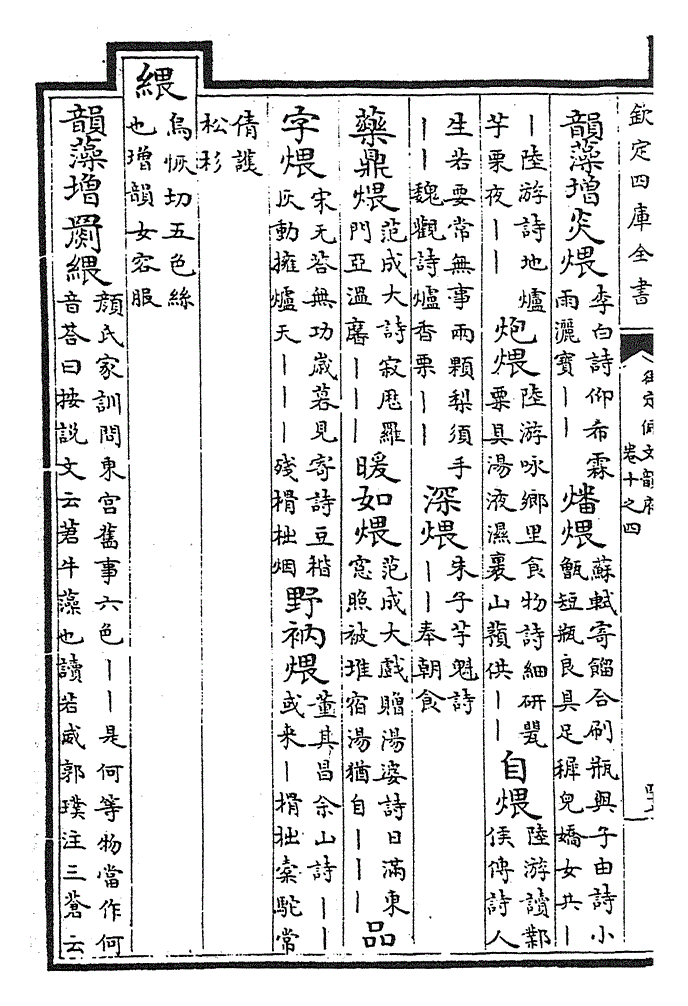 欽定四庫全書
御定佩文韻府
卷十之四
韻藻增炎煨李白詩仰希霖雨灑寶丨丨燔煨蘇軾寄餾合刷瓶與子由詩小甑短瓶良具足穉兒嬌女共丨
丨陸游詩地爐芋栗夜丨丨炮煨陸游咏鄉里食物詩細研罌粟具湯液濕裹山蕷供丨丨自煨陸游讀鄴侯傳詩人
生若要常無事兩顆梨須手丨丨魏觀詩爐香栗丨丨深煨朱子芋魁詩丨丨奉朝食
藥鼎煨范成大詩寂居羅門亞溫黁丨丨丨暖如煨范成大戲贈湯婆詩日滿東窓照被堆宿湯猶自丨丨丨品
字煨宋无荅無功歲暮見寄詩豆稭灰動擁爐天丨丨丨殘榾柮烟野衲煨董其昌佘山詩丨丨或来丨榾柮槖駝常
倩護松杉
䋿烏恢切五色絲也增韻女容服
韻藻增罽䋿顔氏家訓問東宮舊事六色丨丨是何等物當作何音荅曰按說文云莙牛藻也讀若威郭璞注三蒼云